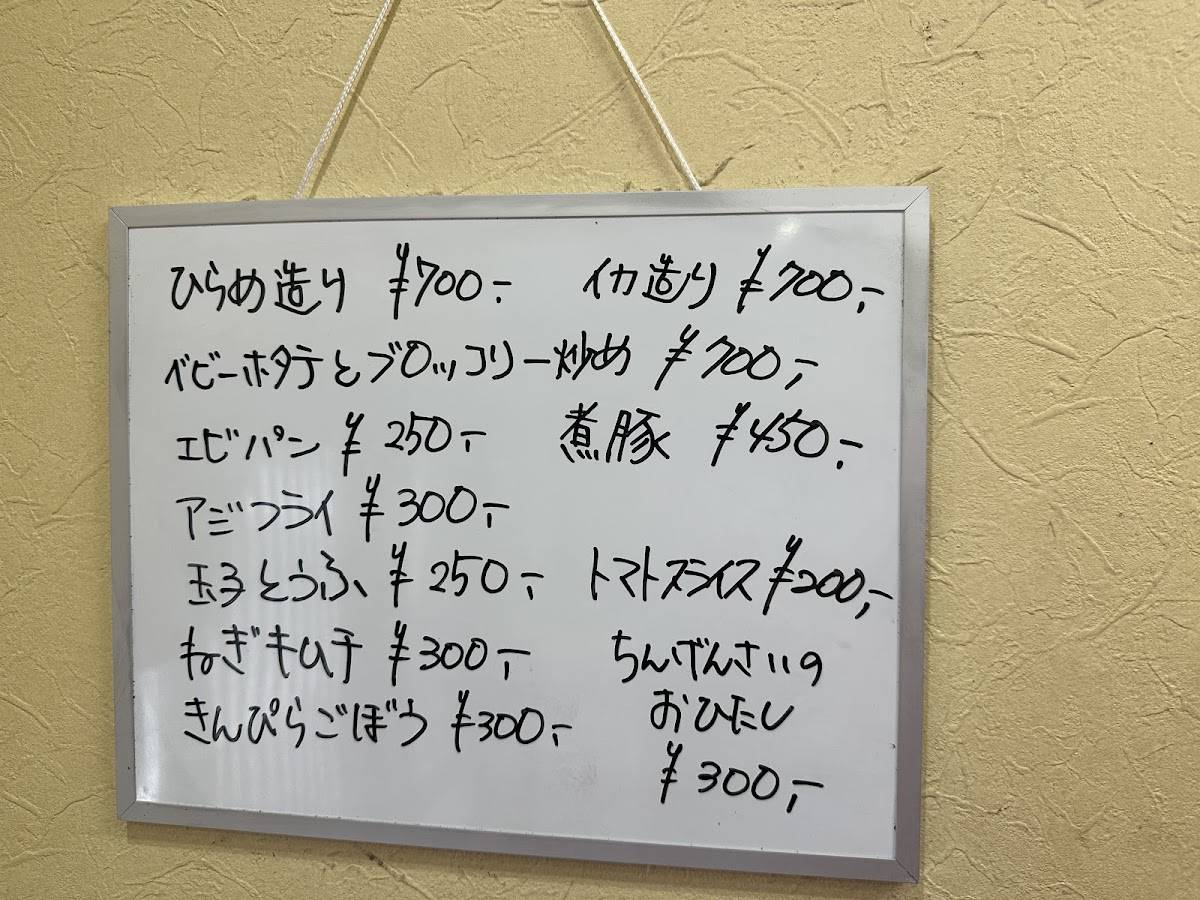 ひらめ造り ¥700,- イカ造り ¥700,-
ベビーホタテとブロッコリー炒め ¥700,-
エビパン ¥250,- 煮豚 ¥450,-
アジフライ ¥300,-
玉子とうふ ¥250,- トマトスライス ¥200,-
ねぎキムチ ¥300,- ちんげんさいの
きんぴらごぼう ¥300,- おひたし
¥300,-